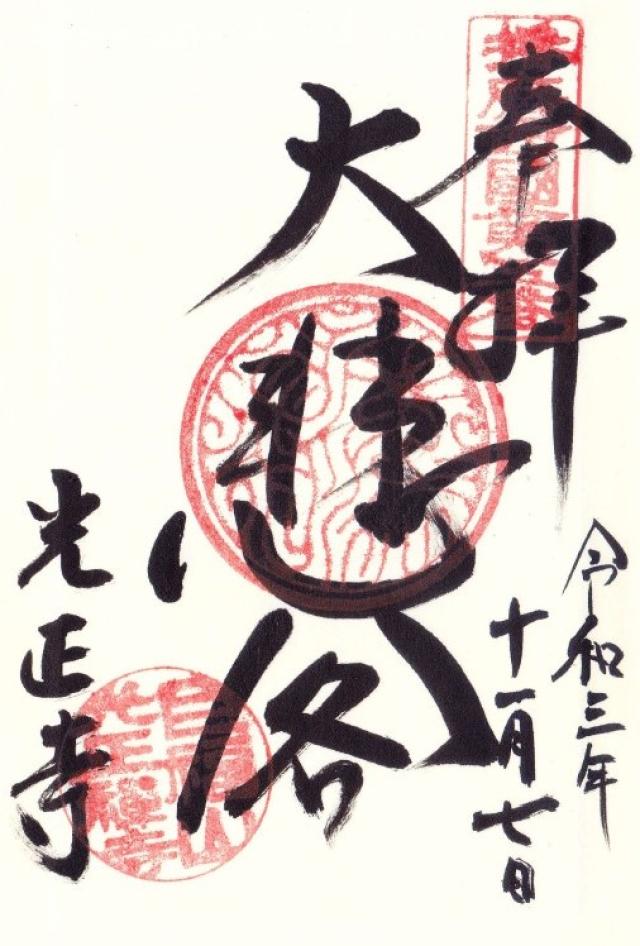 奉拝
令和三年
十一月七日
大悲閣
光正寺